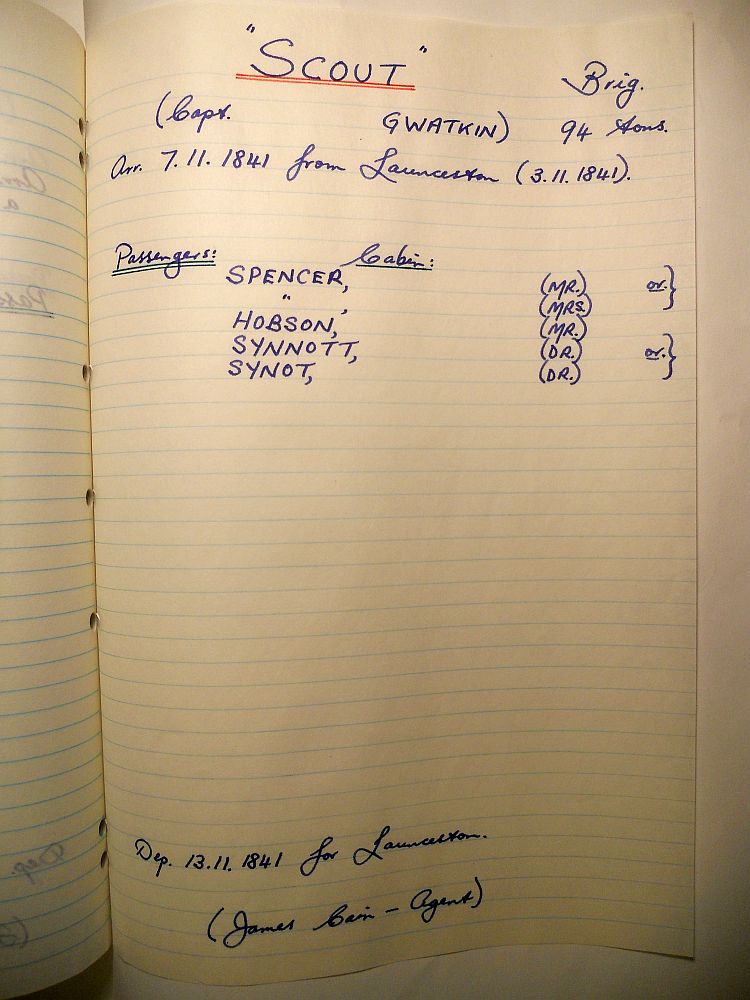 "SCOUT"
Brig.
(Capt. GWATKIN) 94 tons.
Arr. 7.11.1841 from Launceston (3.11.1841).
Passengers: Cabin:
SPENCER, (MR.) or. }
" , (MRS.)
HOBSON, (MR.)
SYNNOTT, (DR.) or. }
SYNOT, (DR.)
Dep. 13.11.1841 for Launceston.
(James Cain - Agent)